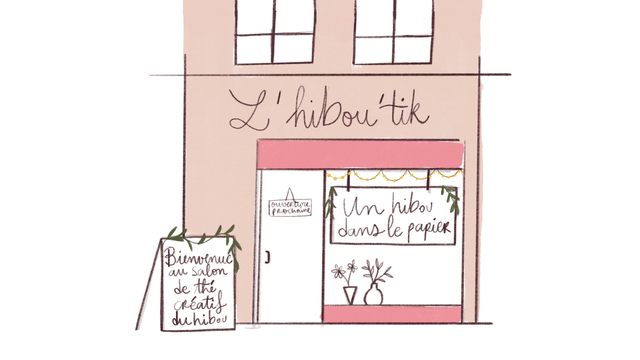 L'hibou'tik
ouverture
prochaine
Un hibou
dans le papier
Bienvenue
au salon
de thé
créatif
du hibou